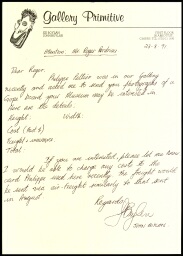 Gallery Primitive
22-8-91
Attention: Mr Roger
Dear Roger,
Philippe Peltier was in our Gallery
recently and asked me to send you photographs of a
Gope Board your Museum may be interested in.
Here are the details.
Height: Width:
Cost
Freight & insurance
Total
If you are interested, please let me know.
I would be able to charge any costs to the
card Philippe used here recently. The freight would
be sent via air-freight similarly to that sent
in August.
Regards,